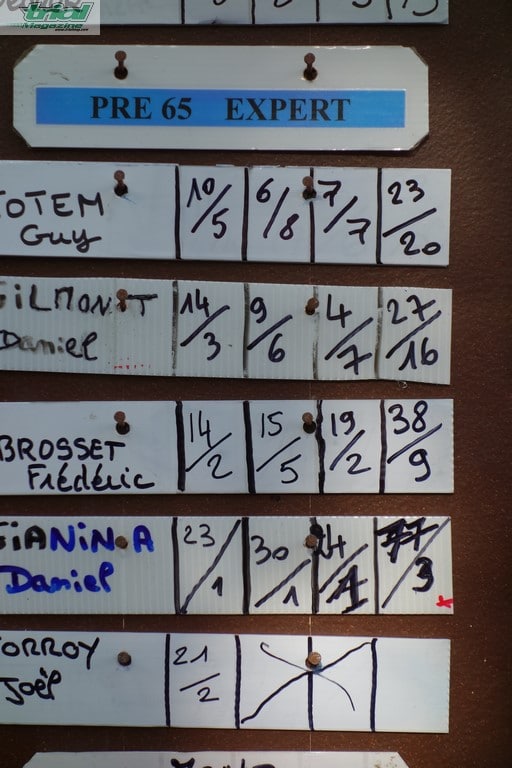 trial
Magazine
PRE 65 EXPERT
TOTEM 10/5 6/8 7/7 23/20
Guy
GILMONT 14/3 9/6 4/7 27/16
Daniel
BROSSET 14/2 15/5 19/2 38/9
Frédéric
GIANINA 23/1 30/1 24/1 77/3
Daniel
TORROY 21/2
Joël